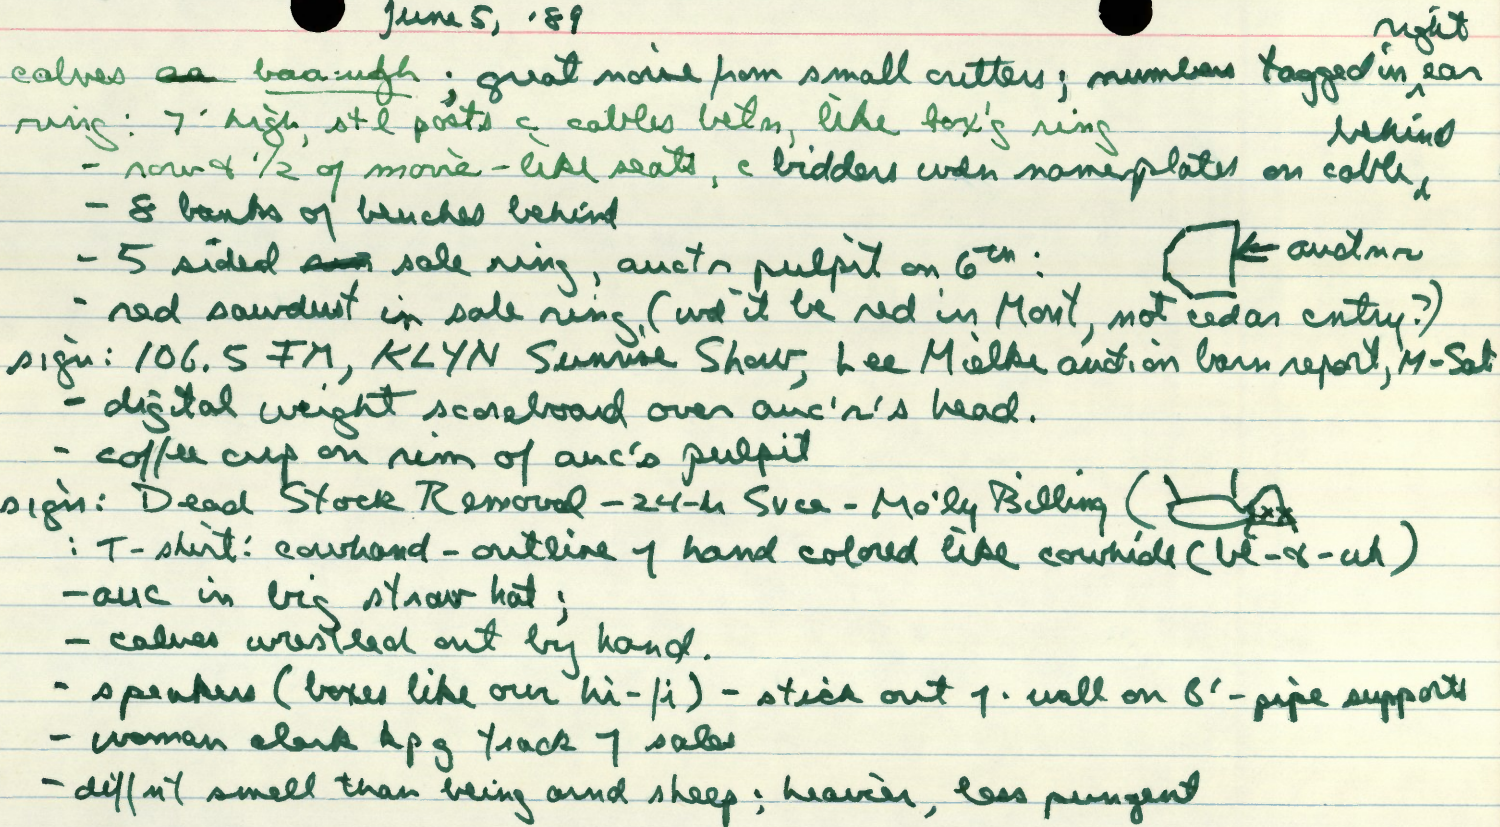 June 5, '89
calves baa-ugh; great noise from small critters; numbers tagged in right ear
ring: 7' high, stl posts c cables betn, like box'g ring
- row & 1/2 of movie-like seats, c bidders' nameplates on cable behind
- 8 banks of benches behind
- 5 sided sale ring, auct'r pulpit on 6th: ← auctnr
- red sawdust in sale ring, (wd it be red in Mont, not cedar cntry?)
sign: 106.5 FM, KLYN Sunrise Show, Lee Mielke auction barn report, M-Sat
- digital weight scoreboard over auc'r's head.
- coffee cup on rim of auc's pulpit
sign: Dead Stock Removal - 24-h Svce - Mo'ly Billing (
: T-shirt: cowhand - outline of hand colored like cowhide (bl-&-wh)
- auc in big straw hat;
- calves wrestled out by hand.
- speakers (boxes like our hi-fi) - stick out f. wall on 6'-pipe supports
- woman clerk kpg track of sales
- diff'nt smell than being arnd sheep; heavier, less pungent